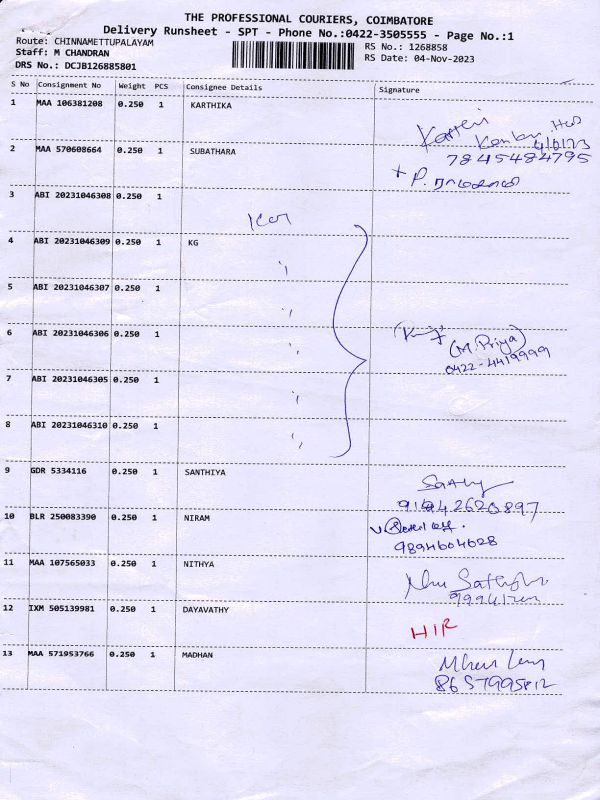 THE PROFESSIONAL COURIERS, COIMBATORE
Delivery Runsheet - SPT - Phone No.:0422-3505555 - Page No.:1
Route: CHINNAMETTUPALAYAM
RS No.: 1268858
Staff: M CHANDRAN
RS Date: 04-Nov-2023
DRS No.: DCJB126885801
S No Consignment No Weight PCS Consignee Details Signature
1 MAA 106381208 0.250 1 KARTHIKA
2 MAA 570608664 0.250 1 SUBATHARA 7845484795
3 ABI 20231046308 0.250 1
4 ABI 20231046309 0.250 1 KG
5 ABI 20231046307 0.250 1
6 ABI 20231046306 0.250 1 (M. Priya)
0422-4419999
7 ABI 20231046305 0.250 1
8 ABI 20231046310 0.250 1
9 GDR 5334116 0.250 1 SANTHIYA
10 BLR 250083390 0.250 1 NIRAM
9894604628
11 MAA 107565033 0.250 1 NITHYA
12 IXM 505139981 0.250 1 DAYAVATHY
13 MAA 571953766 0.250 1 MADHAN